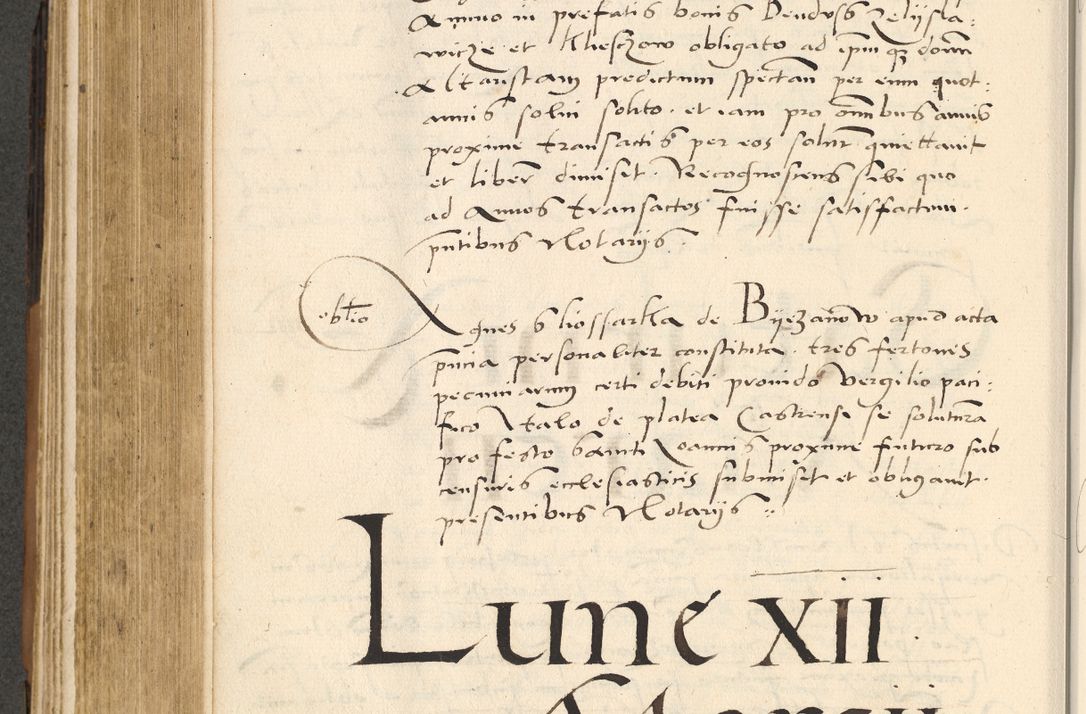 Annuo in prefatis bonis Dendvss Zelijsla„
wicze et Khesczow obligato ad ipm qz domn
Altaristam predictum spectan per eum quot„
annis solui solito. et iam pro omnibus annis
proxime transactis per eos solut quiettauit
et liberu dimisit. Recognoscens sibi quo
ad Annos transactos fuisse satisfactum.
pntibus Notarijs.
obltio
Agnes Sliossarka de Byezanow apud acta
pncia personaliter constituta. tres fertones
pecuniarum certi debiti prouido Vergilio paci„
fico Italo de platea Castrensi se soluturam
pro festo Sancti Ioannis proxime futuro sub
censuris ecclesiasticis submisit et obligauit.
presentibus Notarijs.
Lune xii